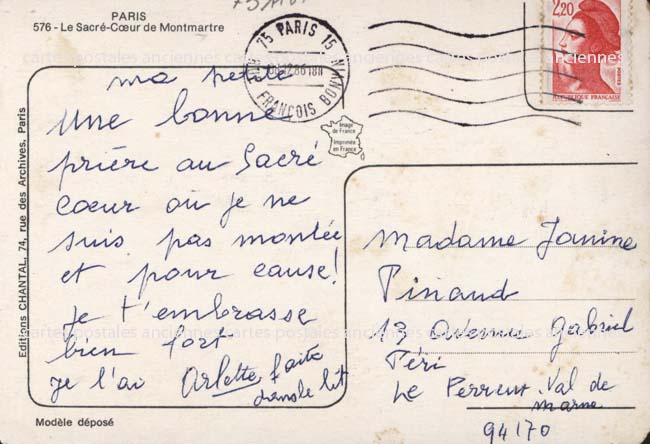 PARIS
576 - Le Sacré-Cœur de Montmartre
75 PARIS 15
18H
FRANÇOIS BONVIN
2,20
POSTES
REPUBLIQUE FRANÇAISE
Image
de France
Imprimée
en France
Editions CHANTAL, 74, rue des Archives, Paris
ma
Une bonne
prière au Sacré
Coeur où je ne
suis pas montée
et pour cause!
je t'embrasse
bien fort
Arlette
je l'ai faite
dans le lit
Madame Janine
Pinaud
13 Avenue Gabriel
Péri
Le Perreux. Val de
marne
94170
Modèle déposé
cartes postales anciennes cartes postales anciennes cartes postales anciennes